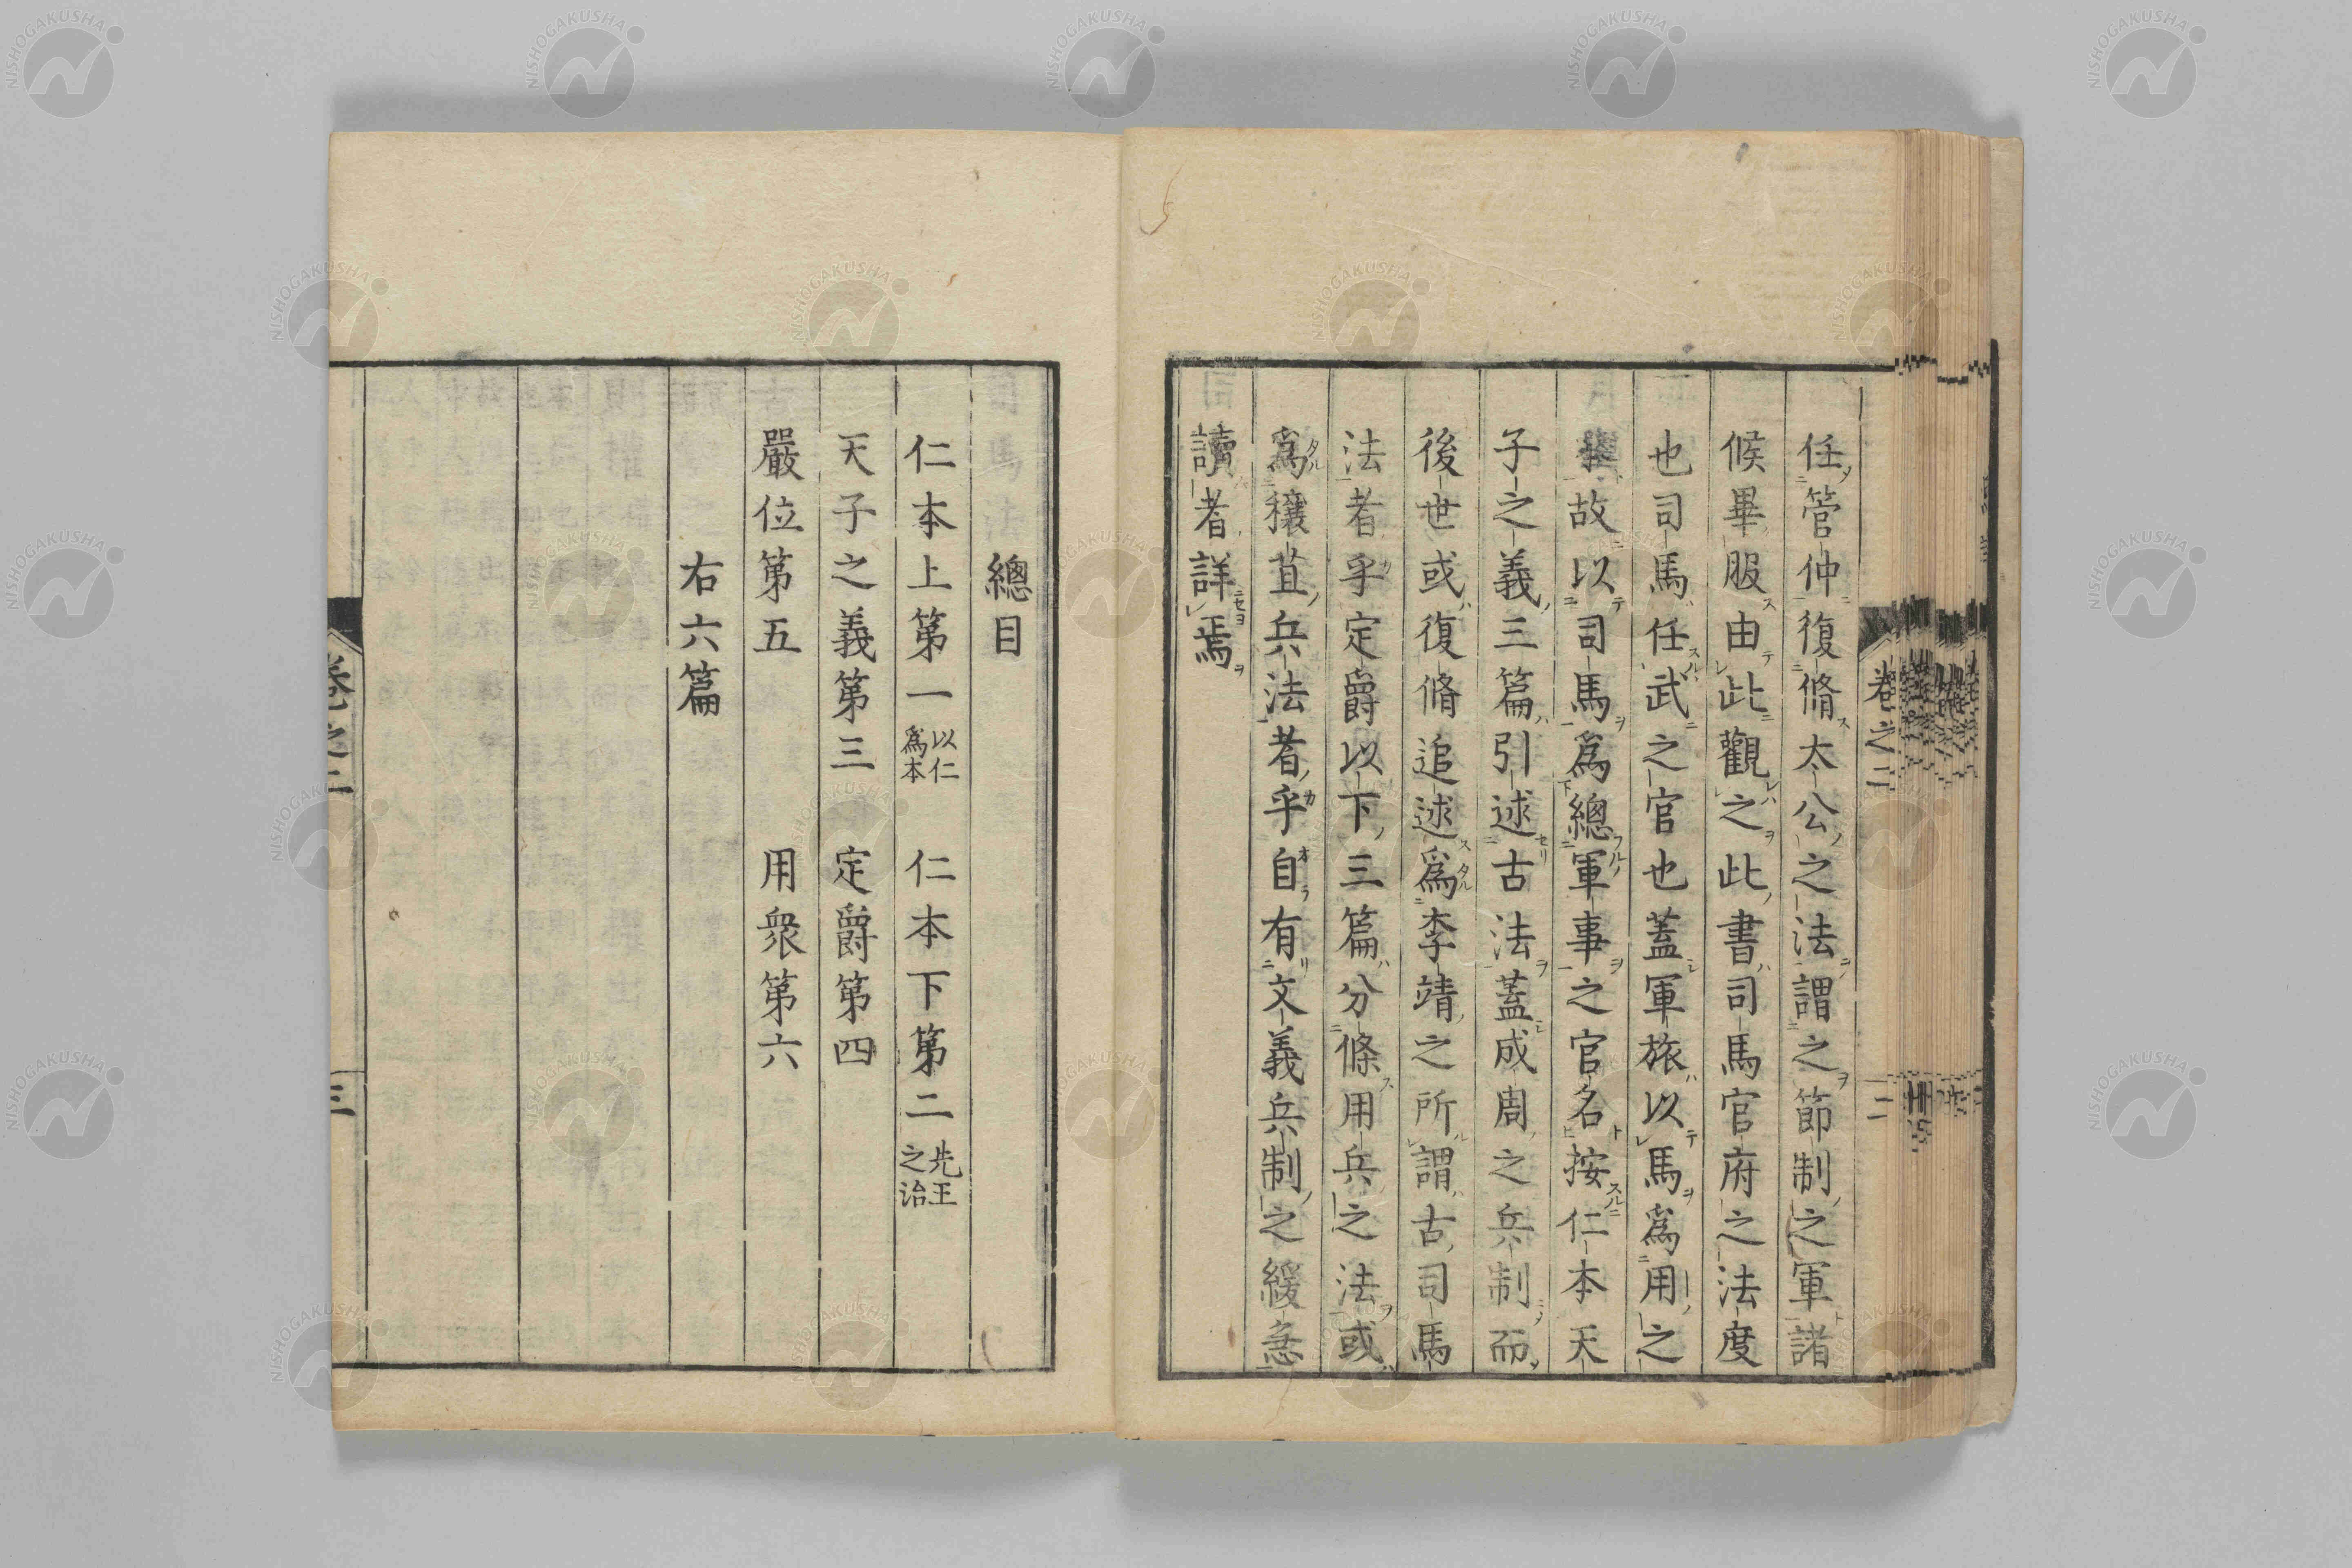 任管仲復脩太公之法謂之節制之軍諸
候畢服由此觀之此書司馬官府之法度
也司馬任武之官也蓋軍旅以馬爲用之
故以司馬爲總軍事之官名按仁本天
子之義三篇引述古法蓋成周之兵制而
後世或復脩追述爲李靖之所謂古司馬
法者乎定爵以下三篇分條用兵之法或
爲穰苴兵法者乎自有文義兵制之緩急
讀者詳焉
卷之二
二
總目
仁本上第一 以仁爲本 仁本下第二 先王之治
天子之義第三 定爵第四
嚴位第五 用衆第六
右六篇
卷之二
三
NISHOGAKUSHA